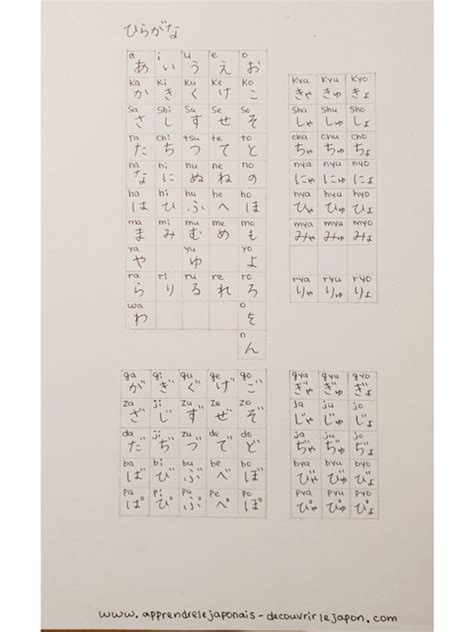 ひらがな
a i u e o
あ い う え お
ka ki ku ke ko
か き く け こ
sa shi su se so
さ し す せ そ
ta chi tsu te to
た ち つ て と
na ni nu ne no
な に ぬ ね の
ha hi hu he ho
は ひ ふ へ ほ
ma mi mu me mo
ま み む め も
ya yu yo
や ゆ よ
ra ri ru re ro
ら り る れ ろ
wa o
わ を
n
ん
kya kyu kyo
きゃ きゅ きょ
sha shu sho
しゃ しゅ しょ
cha chu cho
ちゃ ちゅ ちょ
nya nyu nyo
にゃ にゅ にょ
hya hyu hyo
ひゃ ひゅ ひょ
mya myu myo
みゃ みゅ みょ
rya ryu ryo
りゃ りゅ りょ
ga gi gu ge go
が ぎ ぐ げ ご
za ji zu ze zo
ざ じ ず ぜ ぞ
da ji zu de do
だ ぢ づ で ど
ba bi bu be bo
ば び ぶ べ ぼ
pa pi pu pe po
ぱ ぴ ぷ ぺ ぽ
gya gyu gyo
ぎゃ ぎゅ ぎょ
ja ju jo
じゃ じゅ じょ
ja ju jo
ぢゃ ぢゅ ぢょ
bya byu byo
びゃ びゅ びょ
pya pyu pyo
ぴゃ ぴゅ ぴょ
www.apprendrelejaponais-decouvrirlejapon.com